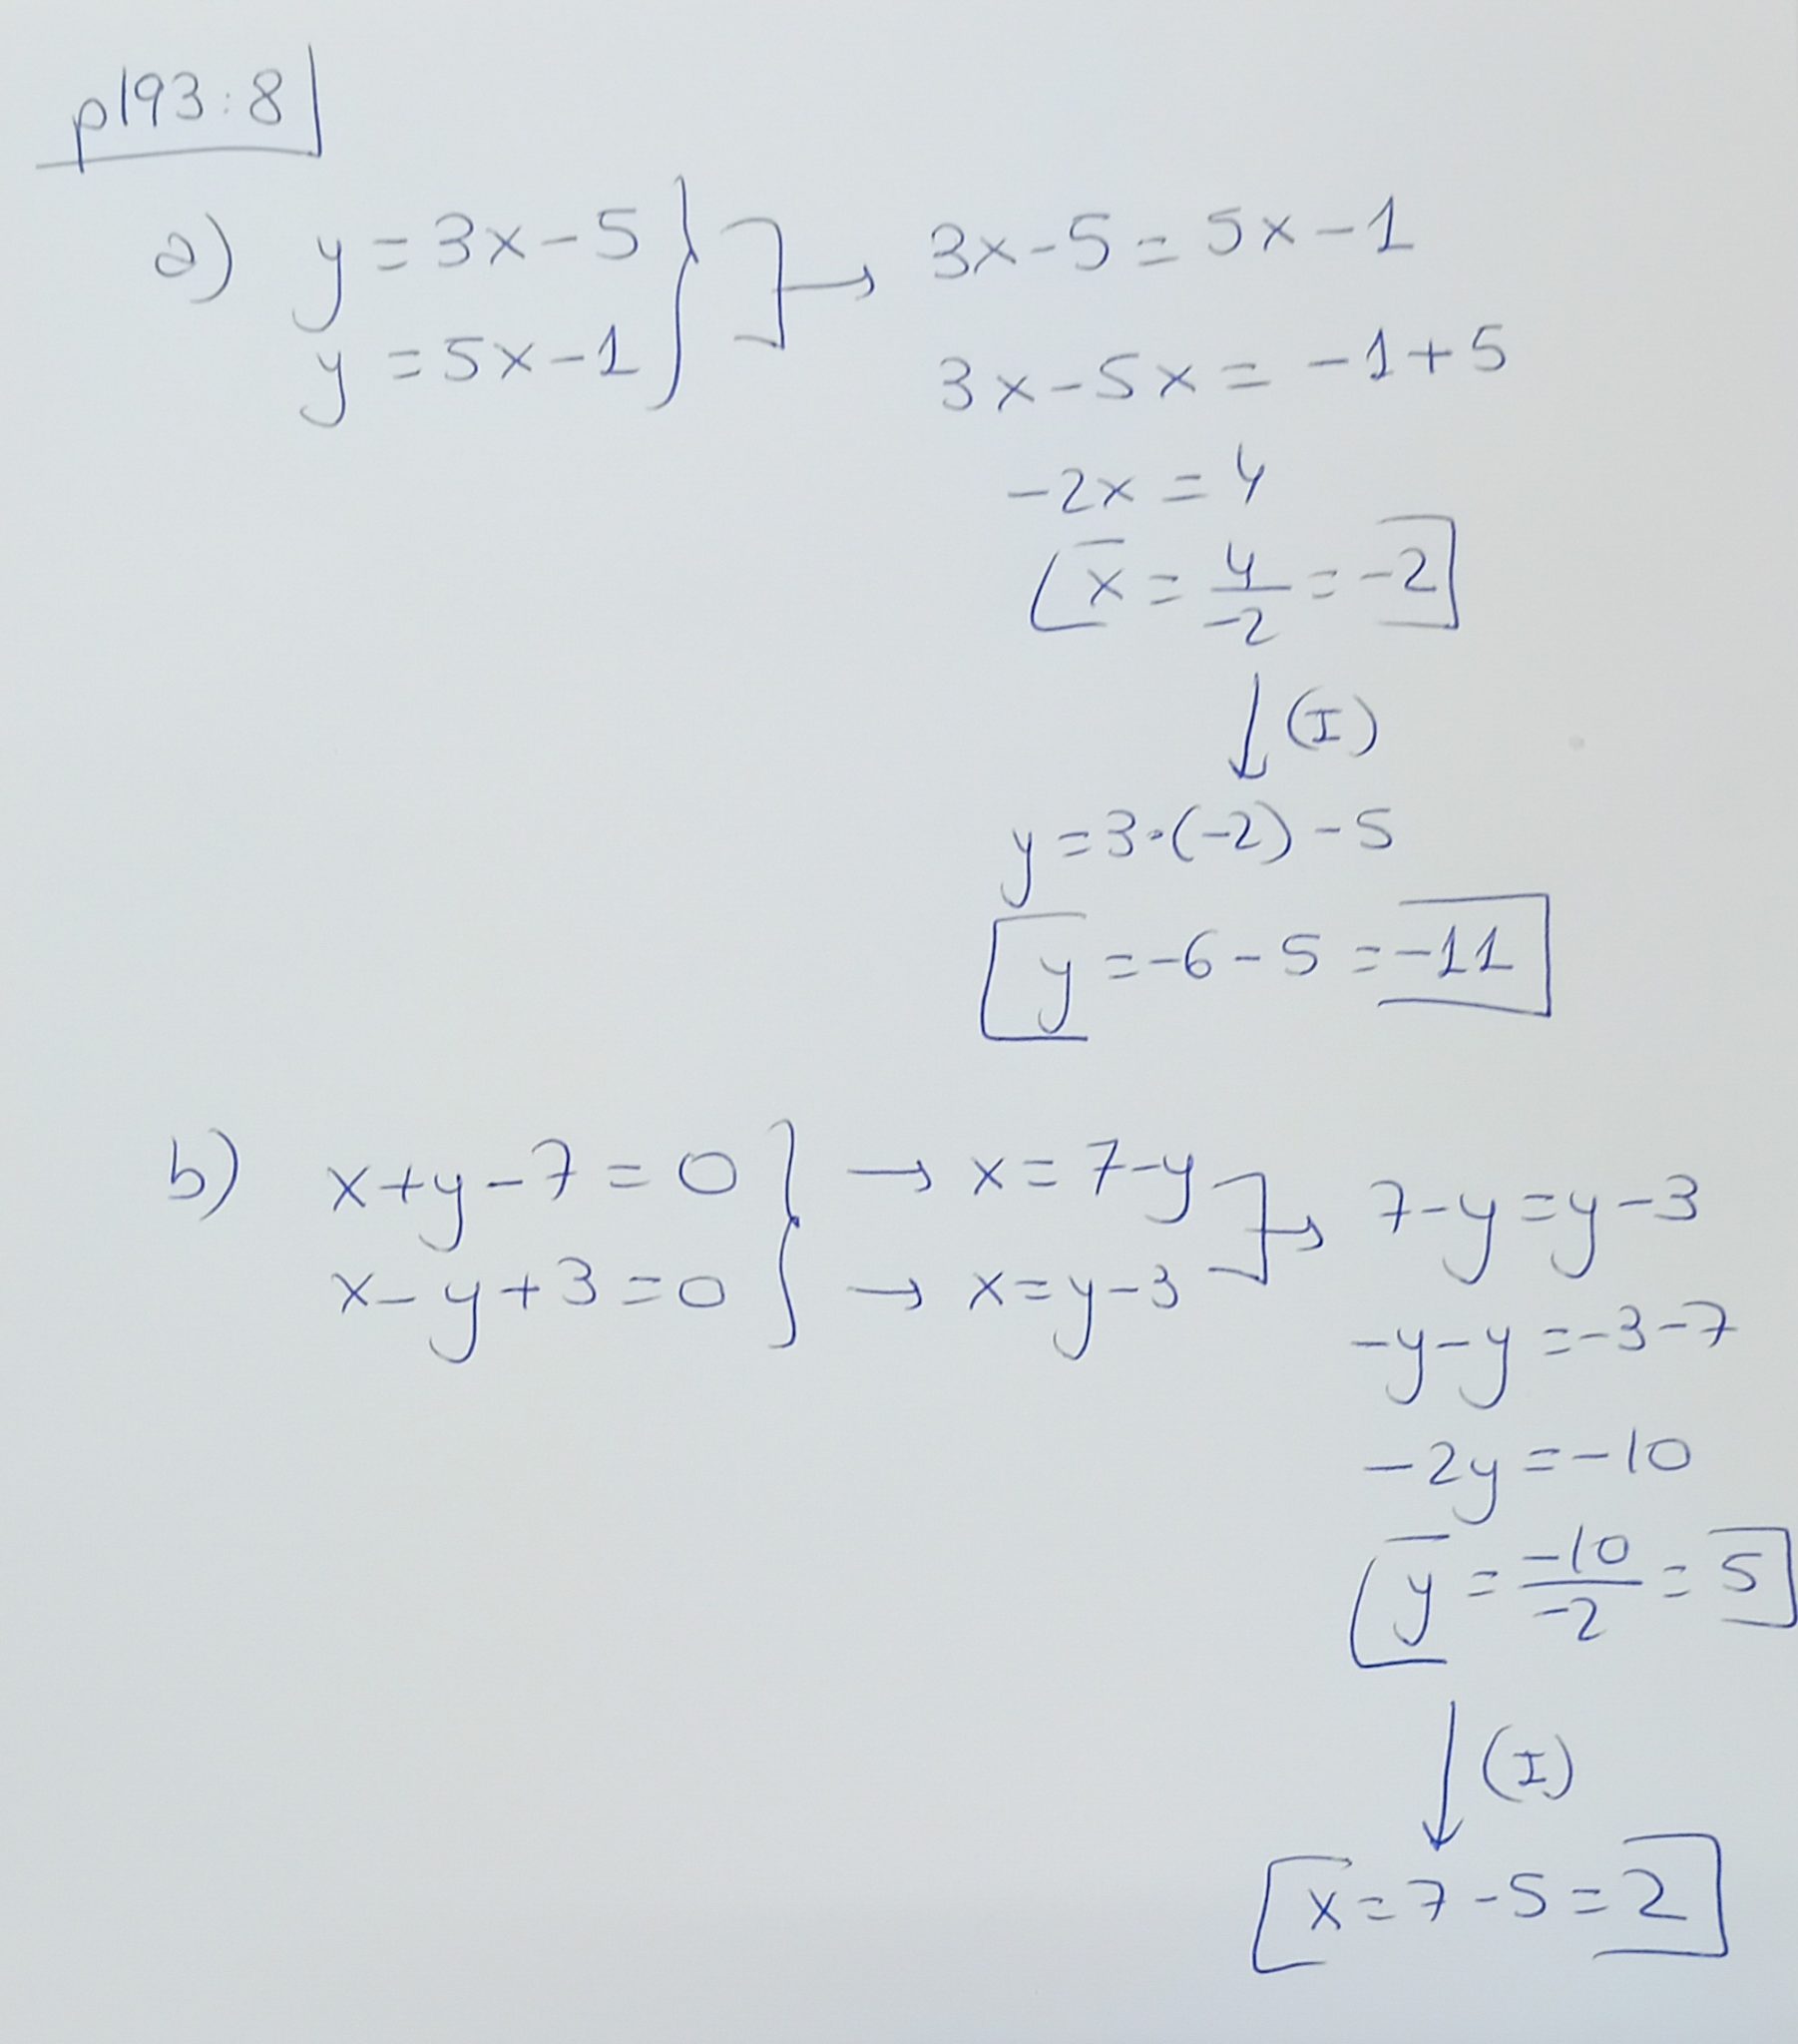 p193:8
a) y = 3x - 5 } → 3x - 5 = 5x - 1
y = 5x - 1
3x - 5x = -1 + 5
-2x = 4
x = 4/-2 = -2
↓ (I)
y = 3·(-2) - 5
y = -6 - 5 = -11
b) x + y - 7 = 0 } → x = 7 - y → 7 - y = y - 3
x - y + 3 = 0 → x = y - 3
-y - y = -3 - 7
-2y = -10
y = -10/-2 = 5
↓ (I)
x = 7 - 5 = 2